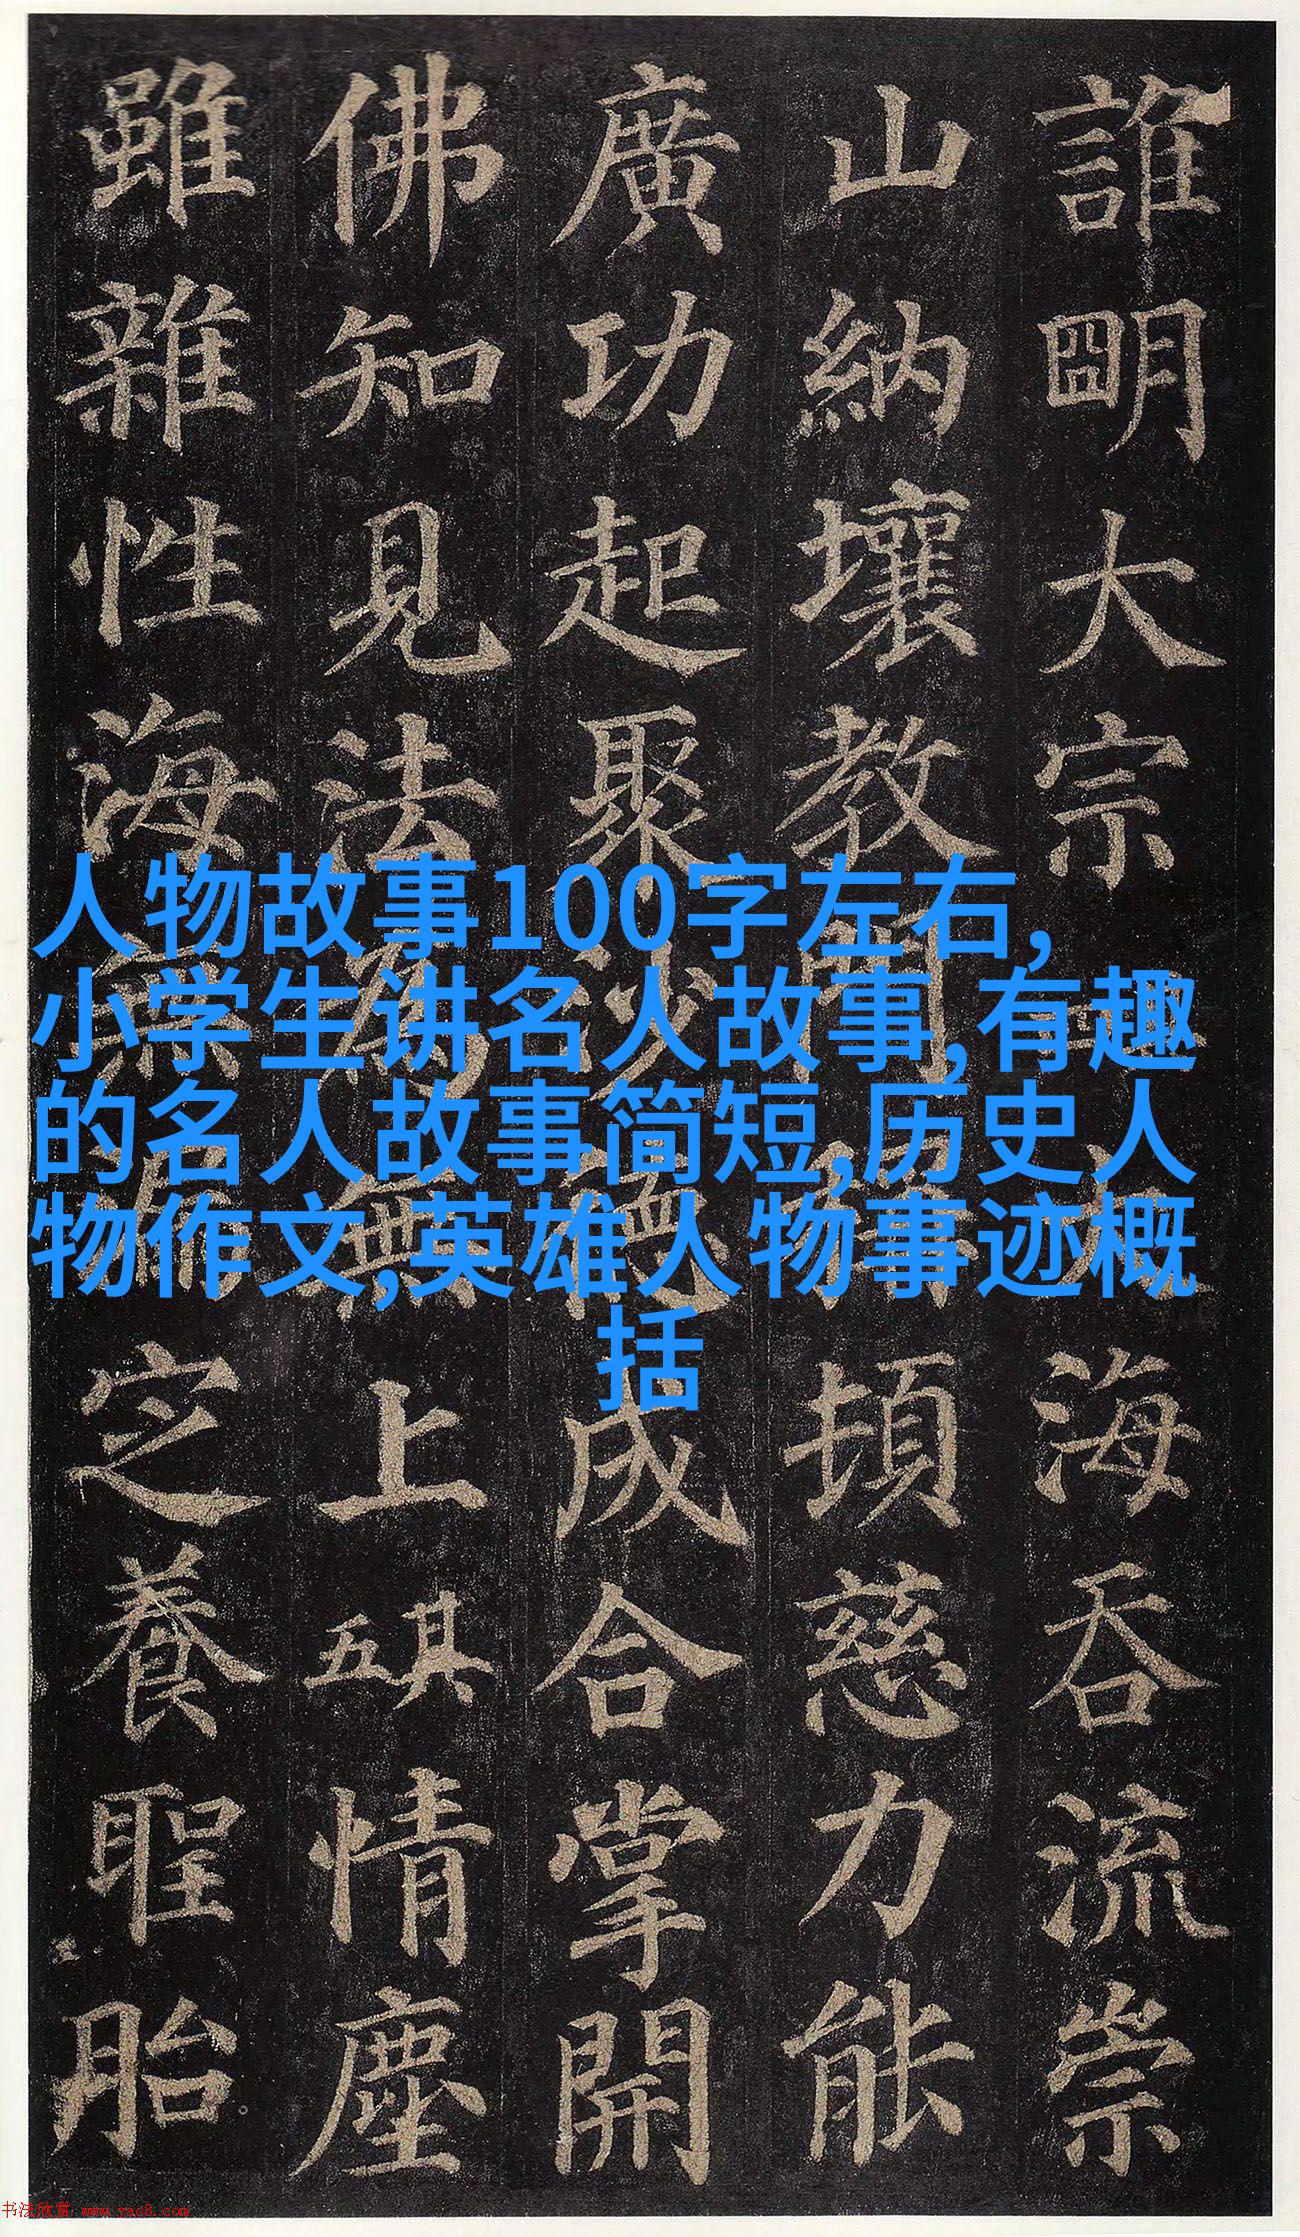 誰明大宗海吞流崇
山納壤教門頓慈力能
廣功起聚沙成合掌開
佛知見法為無上五其情塵
雖雜性海無漏定養聖胎
人物故事100字左右,
小学生讲名人故事,有趣
的名人故事简短,历史人
物作文,英雄人物事迹概
括
书法欣赏 www.yac8.com